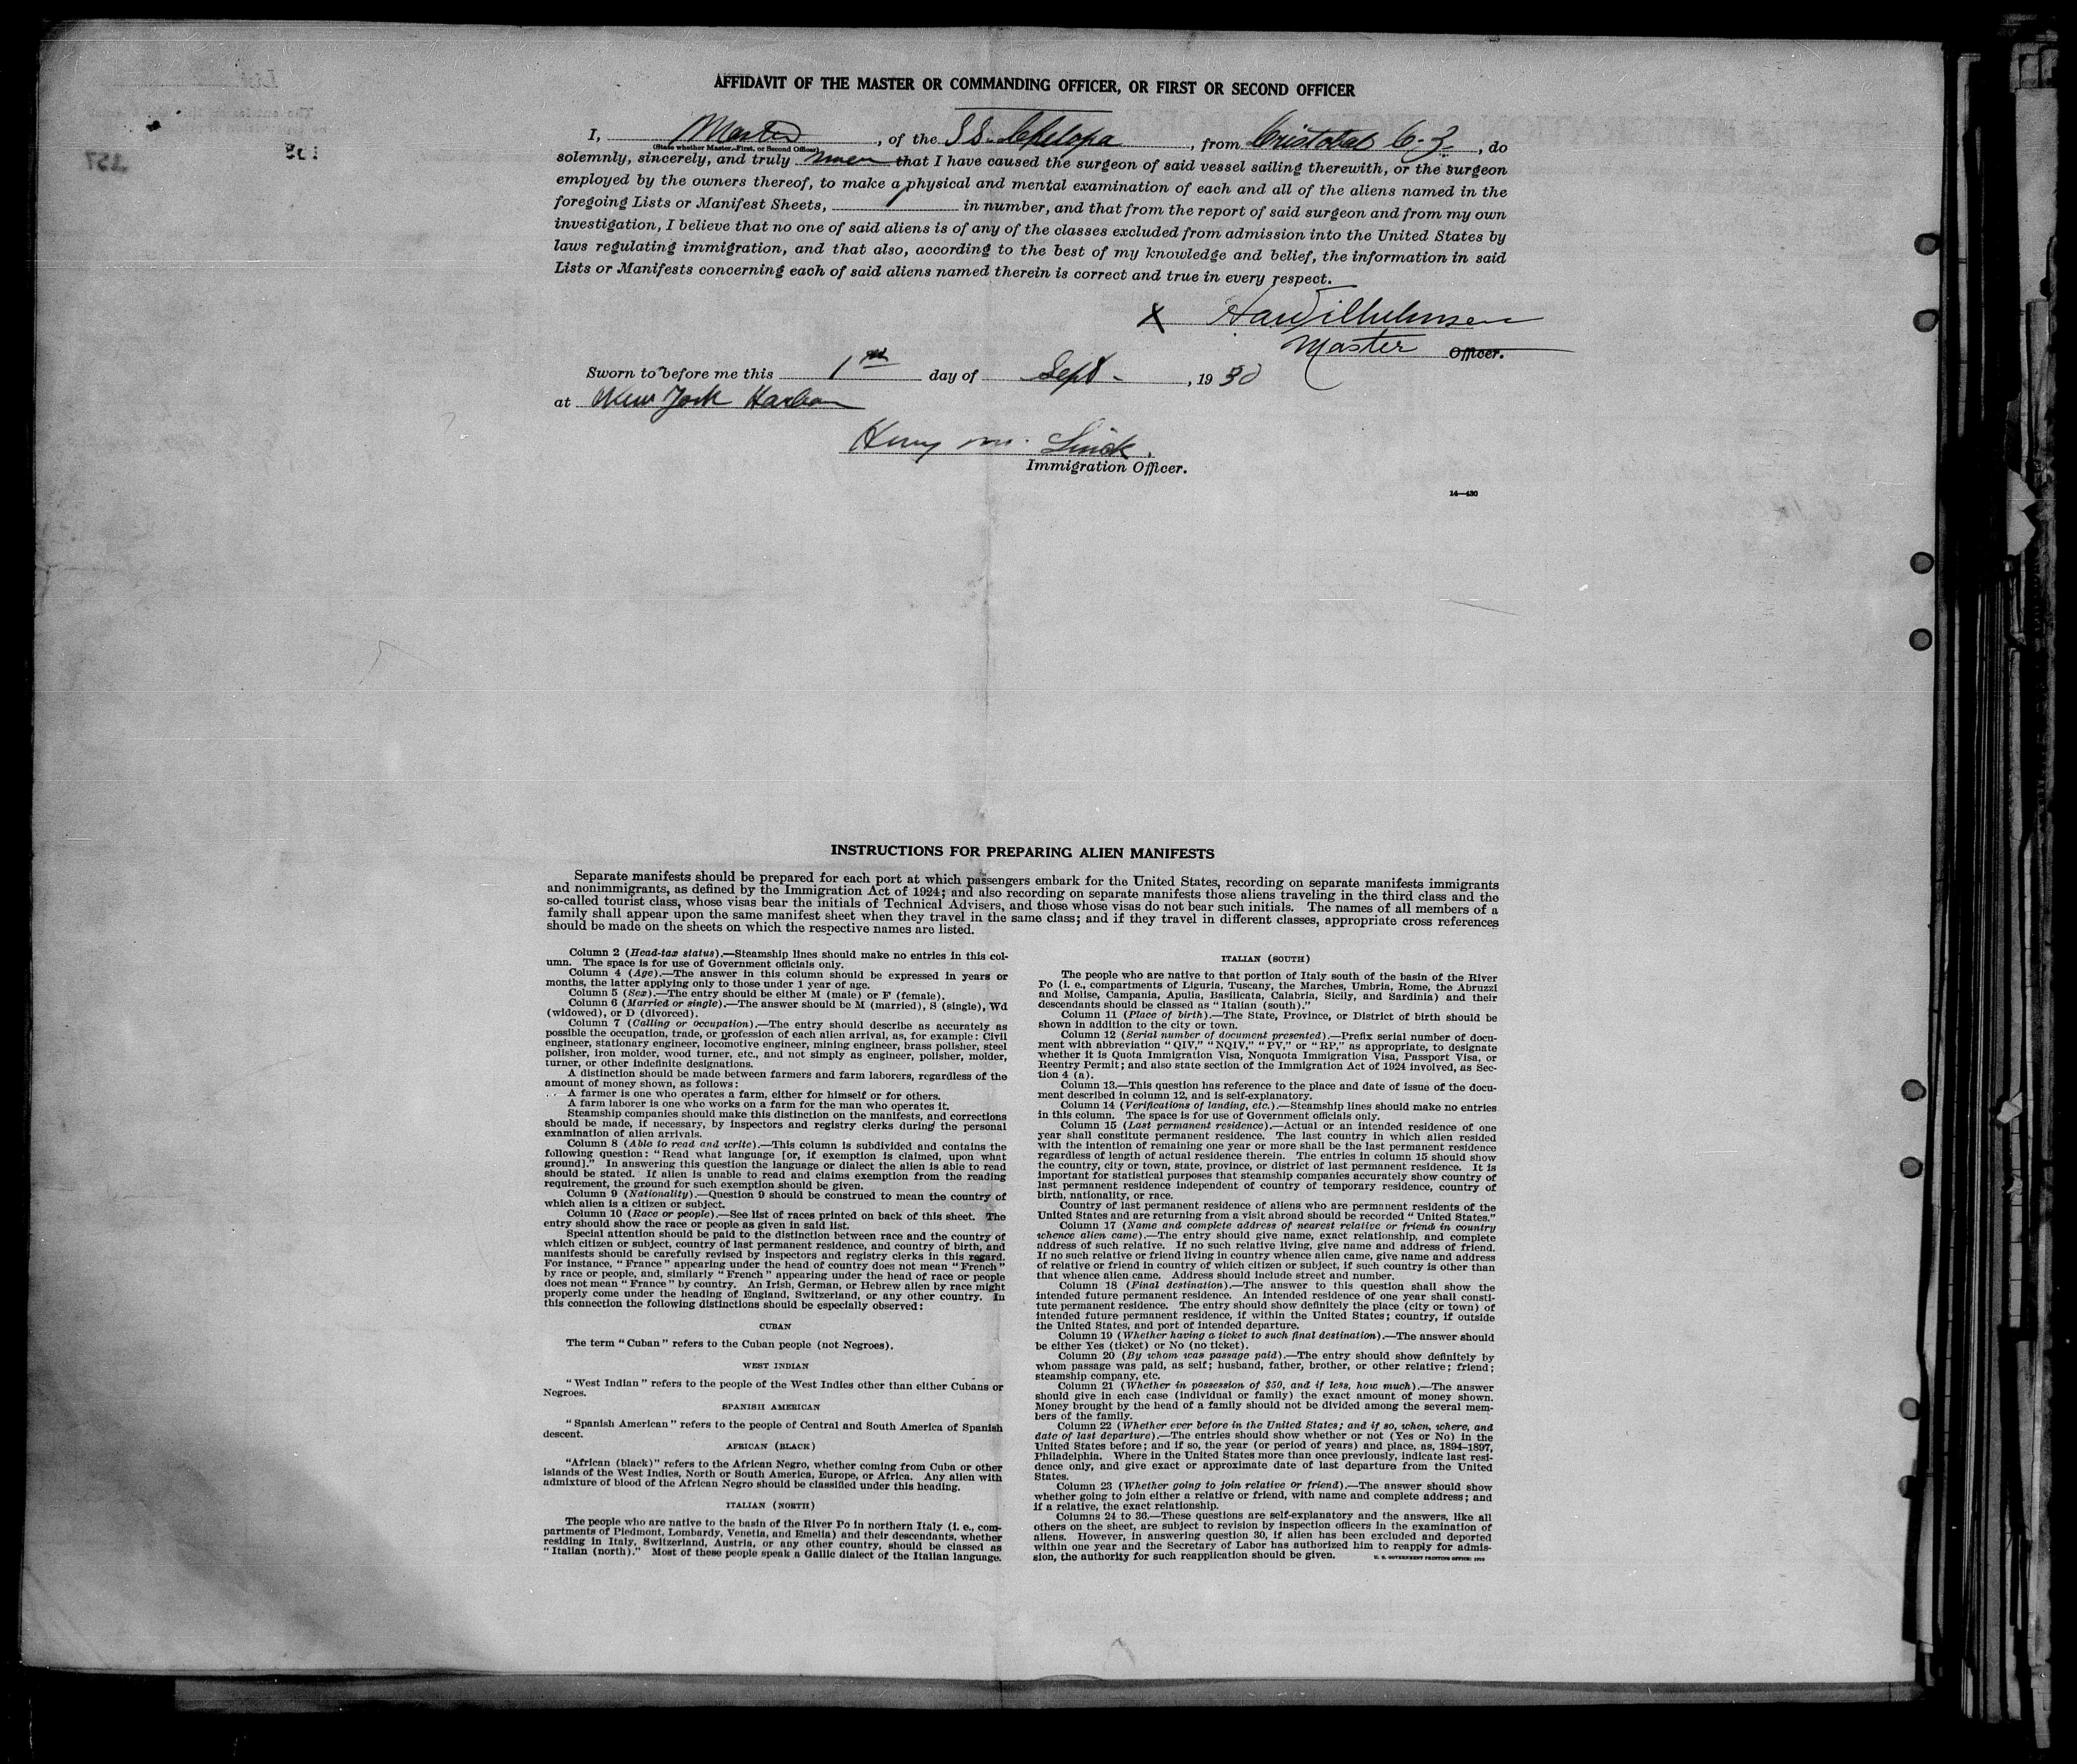 AFFIDAVIT OF THE MASTER OR COMMANDING OFFICER, OR FIRST OR SECOND OFFICER
I, Master, of the S.S. , from Cristobal C.Z., do
(State whether Master, First, or Second Officer)
solemnly, sincerely, and truly swear that I have caused the surgeon of said vessel sailing therewith, or the surgeon
employed by the owners thereof, to make a physical and mental examination of each and all of the aliens named in the
foregoing Lists or Manifest Sheets, in number, and that from the report of said surgeon and from my own
investigation, I believe that no one of said aliens is of any of the classes excluded from admission into the United States by
laws regulating immigration, and that also, according to the best of my knowledge and belief, the information in said
Lists or Manifests concerning each of said aliens named therein is correct and true in every respect.
X
Master Officer.
Sworn to before me this 1st day of Sept-, 1930
at New York Harbor
Henry M.
Immigration Officer.
14—430
INSTRUCTIONS FOR PREPARING ALIEN MANIFESTS
Separate manifests should be prepared for each port at which passengers embark for the United States, recording on separate manifests immigrants
and nonimmigrants, as defined by the Immigration Act of 1924; and also recording on separate manifests those aliens traveling in the third class and the
so-called tourist class, whose visas bear the initials of Technical Advisers, and those whose visas do not bear such initials. The names of all members of a
family shall appear upon the same manifest sheet when they travel in the same class; and if they travel in different classes, appropriate cross references
should be made on the sheets on which the respective names are listed.
Column 2 (Head-tax status).—Steamship lines should make no entries in this col-
umn. The space is for use of Government officials only.
Column 4 (Age).—The answer in this column should be expressed in years or
months, the latter applying only to those under 1 year of age.
Column 5 (Sex).—The entry should be either M (male) or F (female).
Column 6 (Married or single).—The answer should be M (married), S (single), Wd
(widowed), or D (divorced).
Column 7 (Calling or occupation).—The entry should describe as accurately as
possible the occupation, trade, or profession of each alien arrival, as, for example: Civil
engineer, stationary engineer, locomotive engineer, mining engineer, brass polisher, steel
polisher, iron molder, wood turner, etc., and not simply as engineer, polisher, molder,
turner, or other indefinite designations.
A distinction should be made between farmers and farm laborers, regardless of the
amount of money shown, as follows:
A farmer is one who operates a farm, either for himself or for others.
A farm laborer is one who works on a farm for the man who operates it.
Steamship companies should make this distinction on the manifests, and corrections
should be made, if necessary, by inspectors and registry clerks during the personal
examination of alien arrivals.
Column 8 (Able to read and write).—This column is subdivided and contains the
following question: "Read what language [or, if exemption is claimed, upon what
ground]." In answering this question the language or dialect the alien is able to read
should be stated. If alien is unable to read and claims exemption from the reading
requirement, the ground for such exemption should be given.
Column 9 (Nationality).—Question 9 should be construed to mean the country of
which alien is a citizen or subject.
Column 10 (Race or people).—See list of races printed on back of this sheet. The
entry should show the race or people as given in said list.
Special attention should be paid to the distinction between race and the country of
which citizen or subject, country of last permanent residence, and country of birth, and
manifests should be carefully revised by inspectors and registry clerks in this regard.
For instance, "France" appearing under the head of country does not mean "French"
by race or people, and, similarly "French" appearing under the head of race or people
does not mean "France" by country. An Irish, German, or Hebrew alien by race might
properly come under the heading of England, Switzerland, or any other country. In
this connection the following distinctions should be especially observed:
CUBAN
The term "Cuban" refers to the Cuban people (not Negroes).
WEST INDIAN
"West Indian" refers to the people of the West Indies other than either Cubans or
Negroes.
SPANISH AMERICAN
"Spanish American" refers to the people of Central and South America of Spanish
descent.
AFRICAN (BLACK)
"African (black)" refers to the African Negro, whether coming from Cuba or other
islands of the West Indies, North or South America, Europe, or Africa. Any alien with
admixture of blood of the African Negro should be classified under this heading.
ITALIAN (NORTH)
The people who are native to the basin of the River Po in northern Italy (i. e., com-
partments of Piedmont, Lombardy, Venetia, and Emelia) and their descendants, whether
residing in Italy, Switzerland, Austria, or any other country, should be classed as
"Italian (north)." Most of these people speak a Gallic dialect of the Italian language.
ITALIAN (SOUTH)
The people who are native to that portion of Italy south of the basin of the River
Po (i. e., compartments of Liguria, Tuscany, the Marches, Umbria, Rome, the Abruzzi
and Molise, Campania, Apulia, Basilicata, Calabria, Sicily, and Sardinia) and their
descendants should be classed as "Italian (south)."
Column 11 (Place of birth).—The State, Province, or District of birth should be
shown in addition to the city or town.
Column 12 (Serial number of document presented).—Prefix serial number of docu-
ment with abbreviation "QIV," "NQIV," "PV," or "RP," as appropriate, to designate
whether it is Quota Immigration Visa, Nonquota Immigration Visa, Passport Visa, or
Reentry Permit; and also state section of the Immigration Act of 1924 involved, as Sec-
tion 4 (a).
Column 13.—This question has reference to the place and date of issue of the docu-
ment described in column 12, and is self-explanatory.
Column 14 (Verifications of landing, etc.).—Steamship lines should make no entries
in this column. The space is for use of Government officials only.
Column 15 (Last permanent residence).—Actual or an intended residence of one
year shall constitute permanent residence. The last country in which alien resided
with the intention of remaining one year or more shall be the last permanent residence
regardless of length of actual residence therein. The entries in column 15 should show
the country, city or town, state, province, or district of last permanent residence. It is
important for statistical purposes that steamship companies accurately show country of
last permanent residence independent of country of temporary residence, country of
birth, nationality, or race.
Country of last permanent residence of aliens who are permanent residents of the
United States and are returning from a visit abroad should be recorded "United States."
Column 17 (Name and complete address of nearest relative or friend in country
whence alien came).—The entry should give name, exact relationship, and complete
address of such relative. If no such relative living, give name and address of friend.
If no such relative or friend living in country whence alien came, give name and address
of relative or friend in country of which citizen or subject, if such country is other than
that whence alien came. Address should include street and number.
Column 18 (Final destination).—The answer to this question shall show the
intended future permanent residence. An intended residence of one year shall consti-
tute permanent residence. The entry should show definitely the place (city or town) of
intended future permanent residence, if within the United States; country, if outside
the United States, and port of intended departure.
Column 19 (Whether having a ticket to such final destination).—The answer should
be either Yes (ticket) or No (no ticket).
Column 20 (By whom was passage paid).—The entry should show definitely by
whom passage was paid, as self; husband, father, brother, or other relative; friend;
steamship company, etc.
Column 21 (Whether in possession of $50, and if less, how much).—The answer
should give in each case (individual or family) the exact amount of money shown.
Money brought by the head of a family should not be divided among the several mem-
bers of the family.
Column 22 (Whether ever before in the United States; and if so, when, where, and
date of last departure).—The entries should show whether or not (Yes or No) in the
United States before; and if so, the year (or period of years) and place, as, 1894–1897,
Philadelphia. Where in the United States more than once previously, indicate last resi-
dence only, and give exact or approximate date of last departure from the United
States.
Column 23 (Whether going to join relative or friend).—The answer should show
whether going to join either a relative or friend, with name and complete address; and
if a relative, the exact relationship.
Columns 24 to 36.—These questions are self-explanatory and the answers, like all
others on the sheet, are subject to revision by inspection officers in the examination of
aliens. However, in answering question 30, if alien has been excluded and deported
within one year and the Secretary of Labor has authorized him to reapply for admis-
sion, the authority for such reapplication should be given.
U. S. GOVERNMENT PRINTING OFFICE: